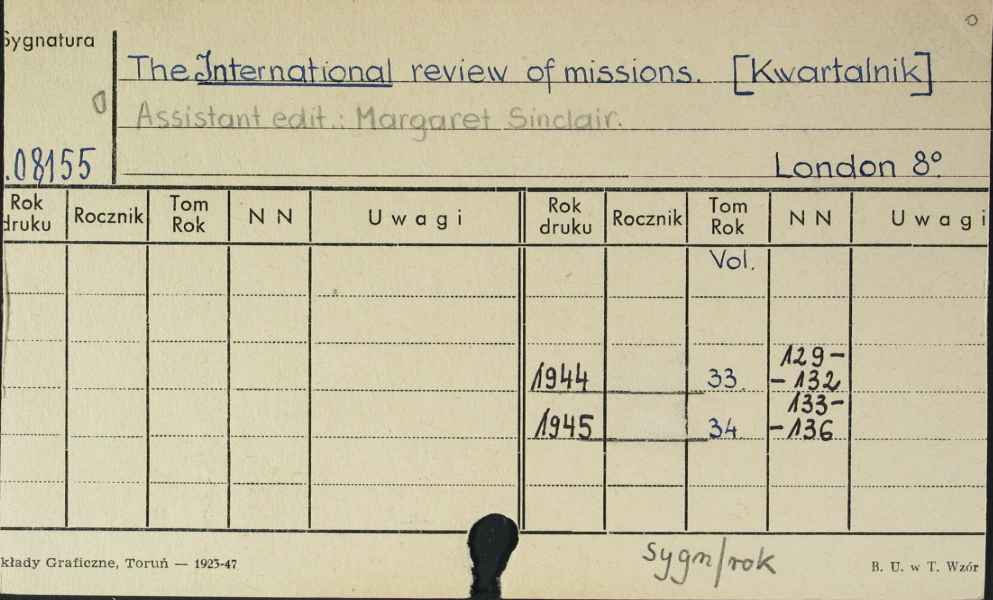 Sygnatura
The International review of missions. [Kwartalnik]
Assistant edit.: Margaret Sinclair.
.08155
London 8º.
Rok druku Rocznik Tom Rok N N Uwagi Rok druku Rocznik Tom Rok N N Uwagi
Vol.
1944 33 129-
-132
1945 34 133-
-136
sygn/rok
kłady Graficzne, Toruń — 1923-47
B. U. w T. Wzór